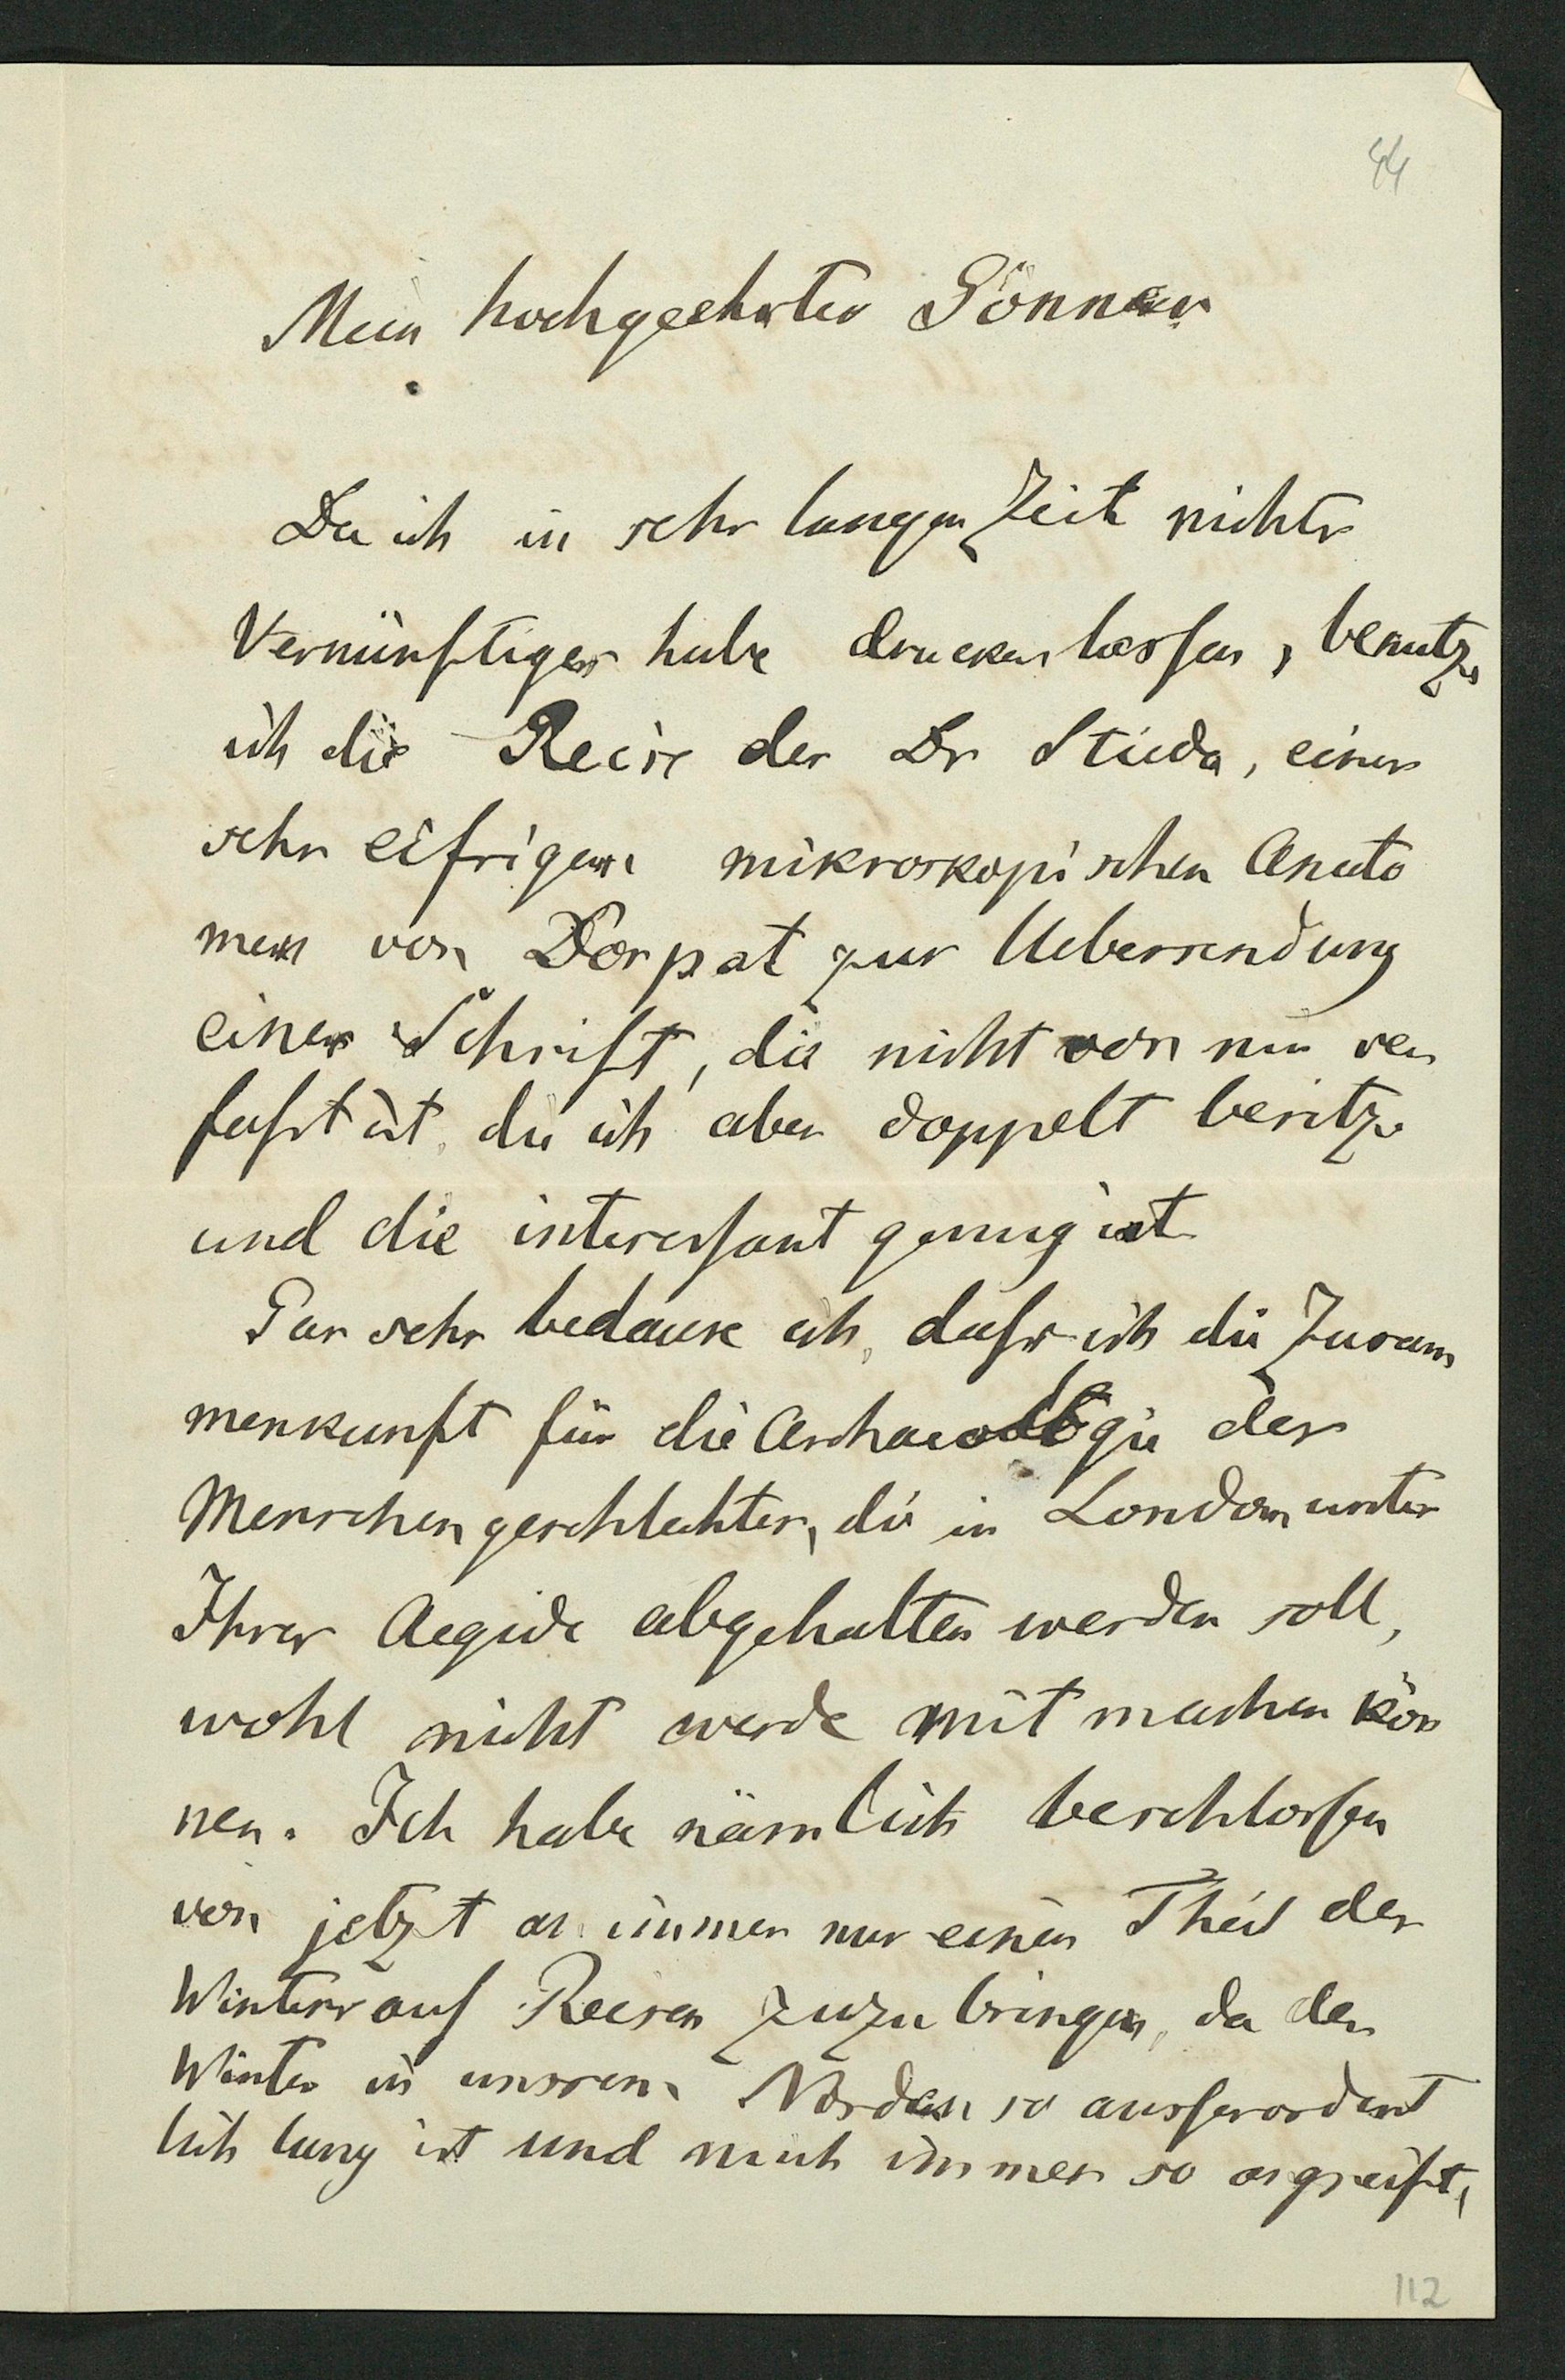 44
Mein hochgeehrter Gönner
Da ich in sehr langer Zeit nichts
Vernünftiges habe drucken lassen, benutze
ich die Reise des Dr Stieda, eines
sehr eifrigen mikroskopischen Anato
men von Dorpat zur Uebersendung
einer Schrift, die nicht von mir ver
faßt ist, die ich aber doppelt besitze
und die interessant genug ist.
Gar sehr bedaure ich, daß ich die Zusam
menkunft für die Archaeologie des
Menschengeschlechtes, die in London unter
Ihrer Aegide abgehalten werden soll,
wohl nicht werde mit machen kön
nen. Ich habe nämlich beschlossen
von jetzt an immer nur einen Theil des
Winters auf Reisen zuzubringen, da der
Winter in unsrem Norden so ausserordent
lich lang ist und mich immer so angreift,
112